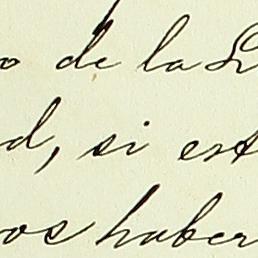 o de la
d, si est
os haber